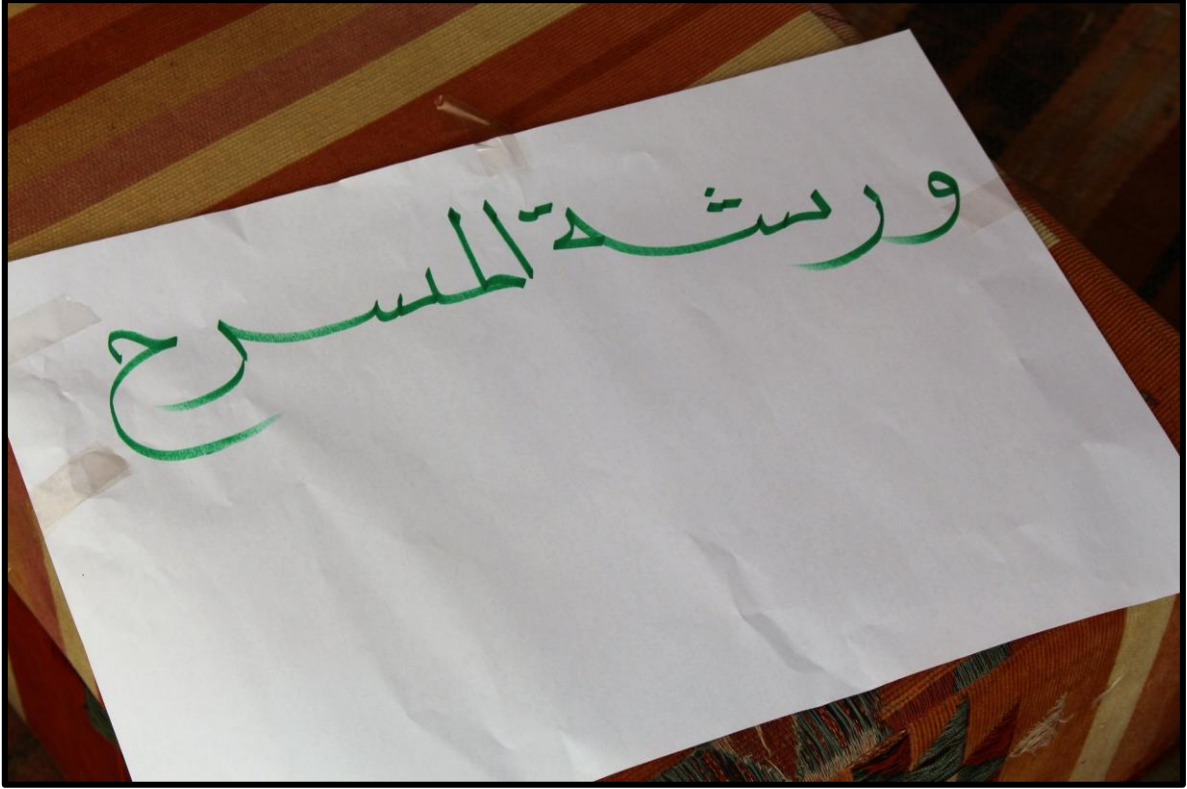 ورشة المسرح